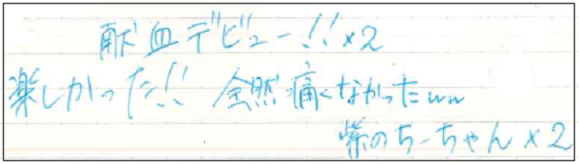 献血デビュー!!×2
楽しかった!! 全然痛くなかったww
紫のちーちゃん×2